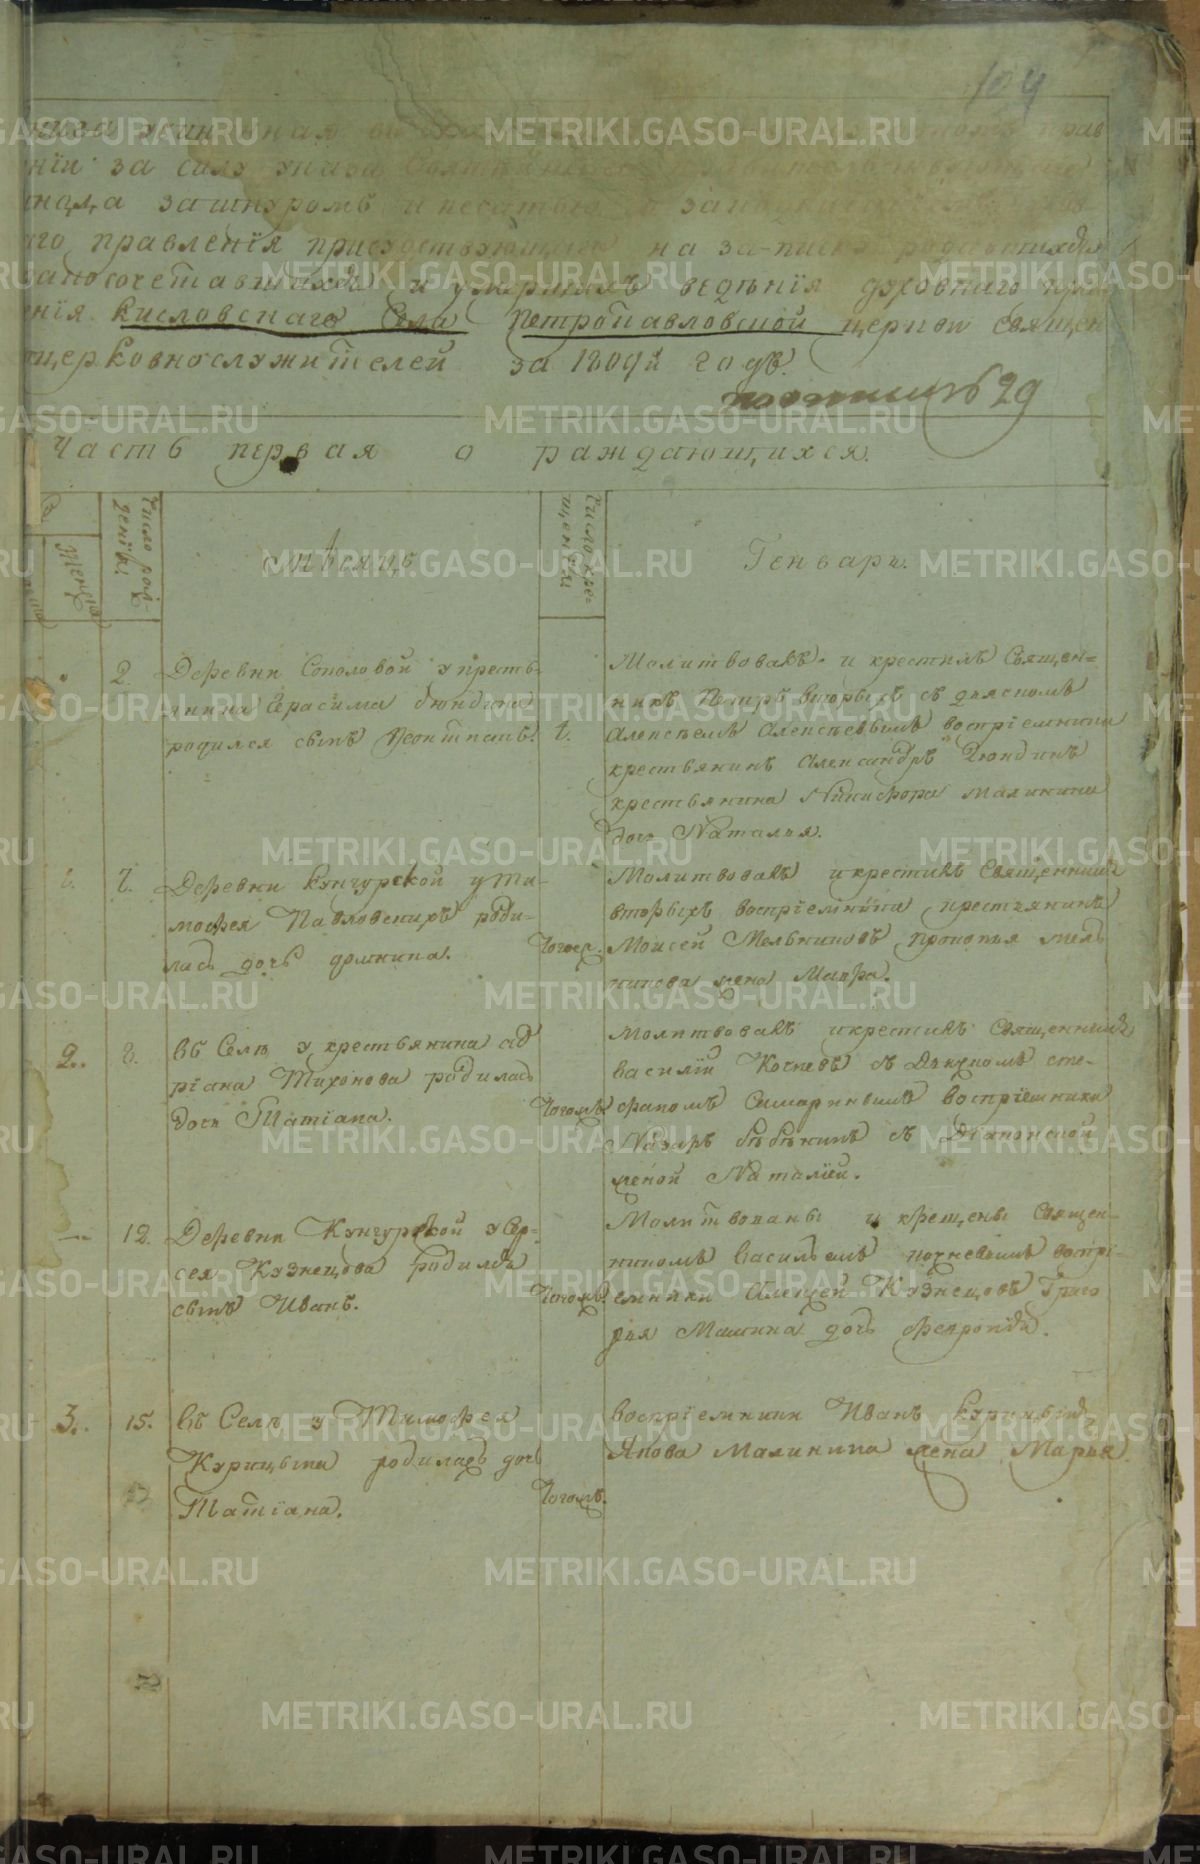 104
за силу указа
за шнуромъ и печатью
правленїя присудствующаго на записку родившихся
бракосочетавшихся и умершихъ веденїя духовнаго
Кисловскаго Села Петропавловской церкви священ
церковнослужителей за 1809й годъ.
29
Часть первая о раждающихся.
Число рож-
денїя
Женска
Мѣсяцъ
Число кре=
щенїя
Генварь.
2. Деревни Соколовой у кресть-
янина Герасима Дюндина
родился сынъ Феоктистъ.
Молитвовалъ и крестилъ Священ=
никъ Петръ Вторыхъ съ дьякономъ
Алексѣемъ Алексѣевымъ воспрїемники
крестьянинъ Александръ Дюндинъ
крестьянина Никифора Малинина
дочь Наталья.
1. 7. Деревни Кунгурской у Ти-
мофея Павловскихъ роди-
лась дочь Домника.
Молитвовалъ и крестилъ Священникъ
Вторыхъ воспрїемники крестьянинъ
Моисей Мельниковъ Прокопья Мель
никова жена Мавра.
2. 8. въ Селѣ у крестьянина Ад
рїана Тихонова родилась
дочь Татїана.
Тогожъ
Молитвовалъ и крестилъ Священникъ
Василїй Кочневъ съ Дьякономъ Сте-
фаномъ воспрїемники
Назаръ съ Дїаконской
женой Наталїей.
— 12. Деревни Кунгурской у Ев-
сея Кузнецова родился
сынъ Иванъ.
Тогожъ.
Молитвованы и крещены Священ-
никомъ Васильемъ Кочневымъ воспрї-
емники Алексей Кузнецовъ Григо
рья Машина дочь Февронїя.
3. 15. въ Селѣ у Тимофея
Курицына родилась дочь
Татїана.
Тогожъ.
воспрїемники Иванъ Курицынъ
Якова Малинина жена Марья.